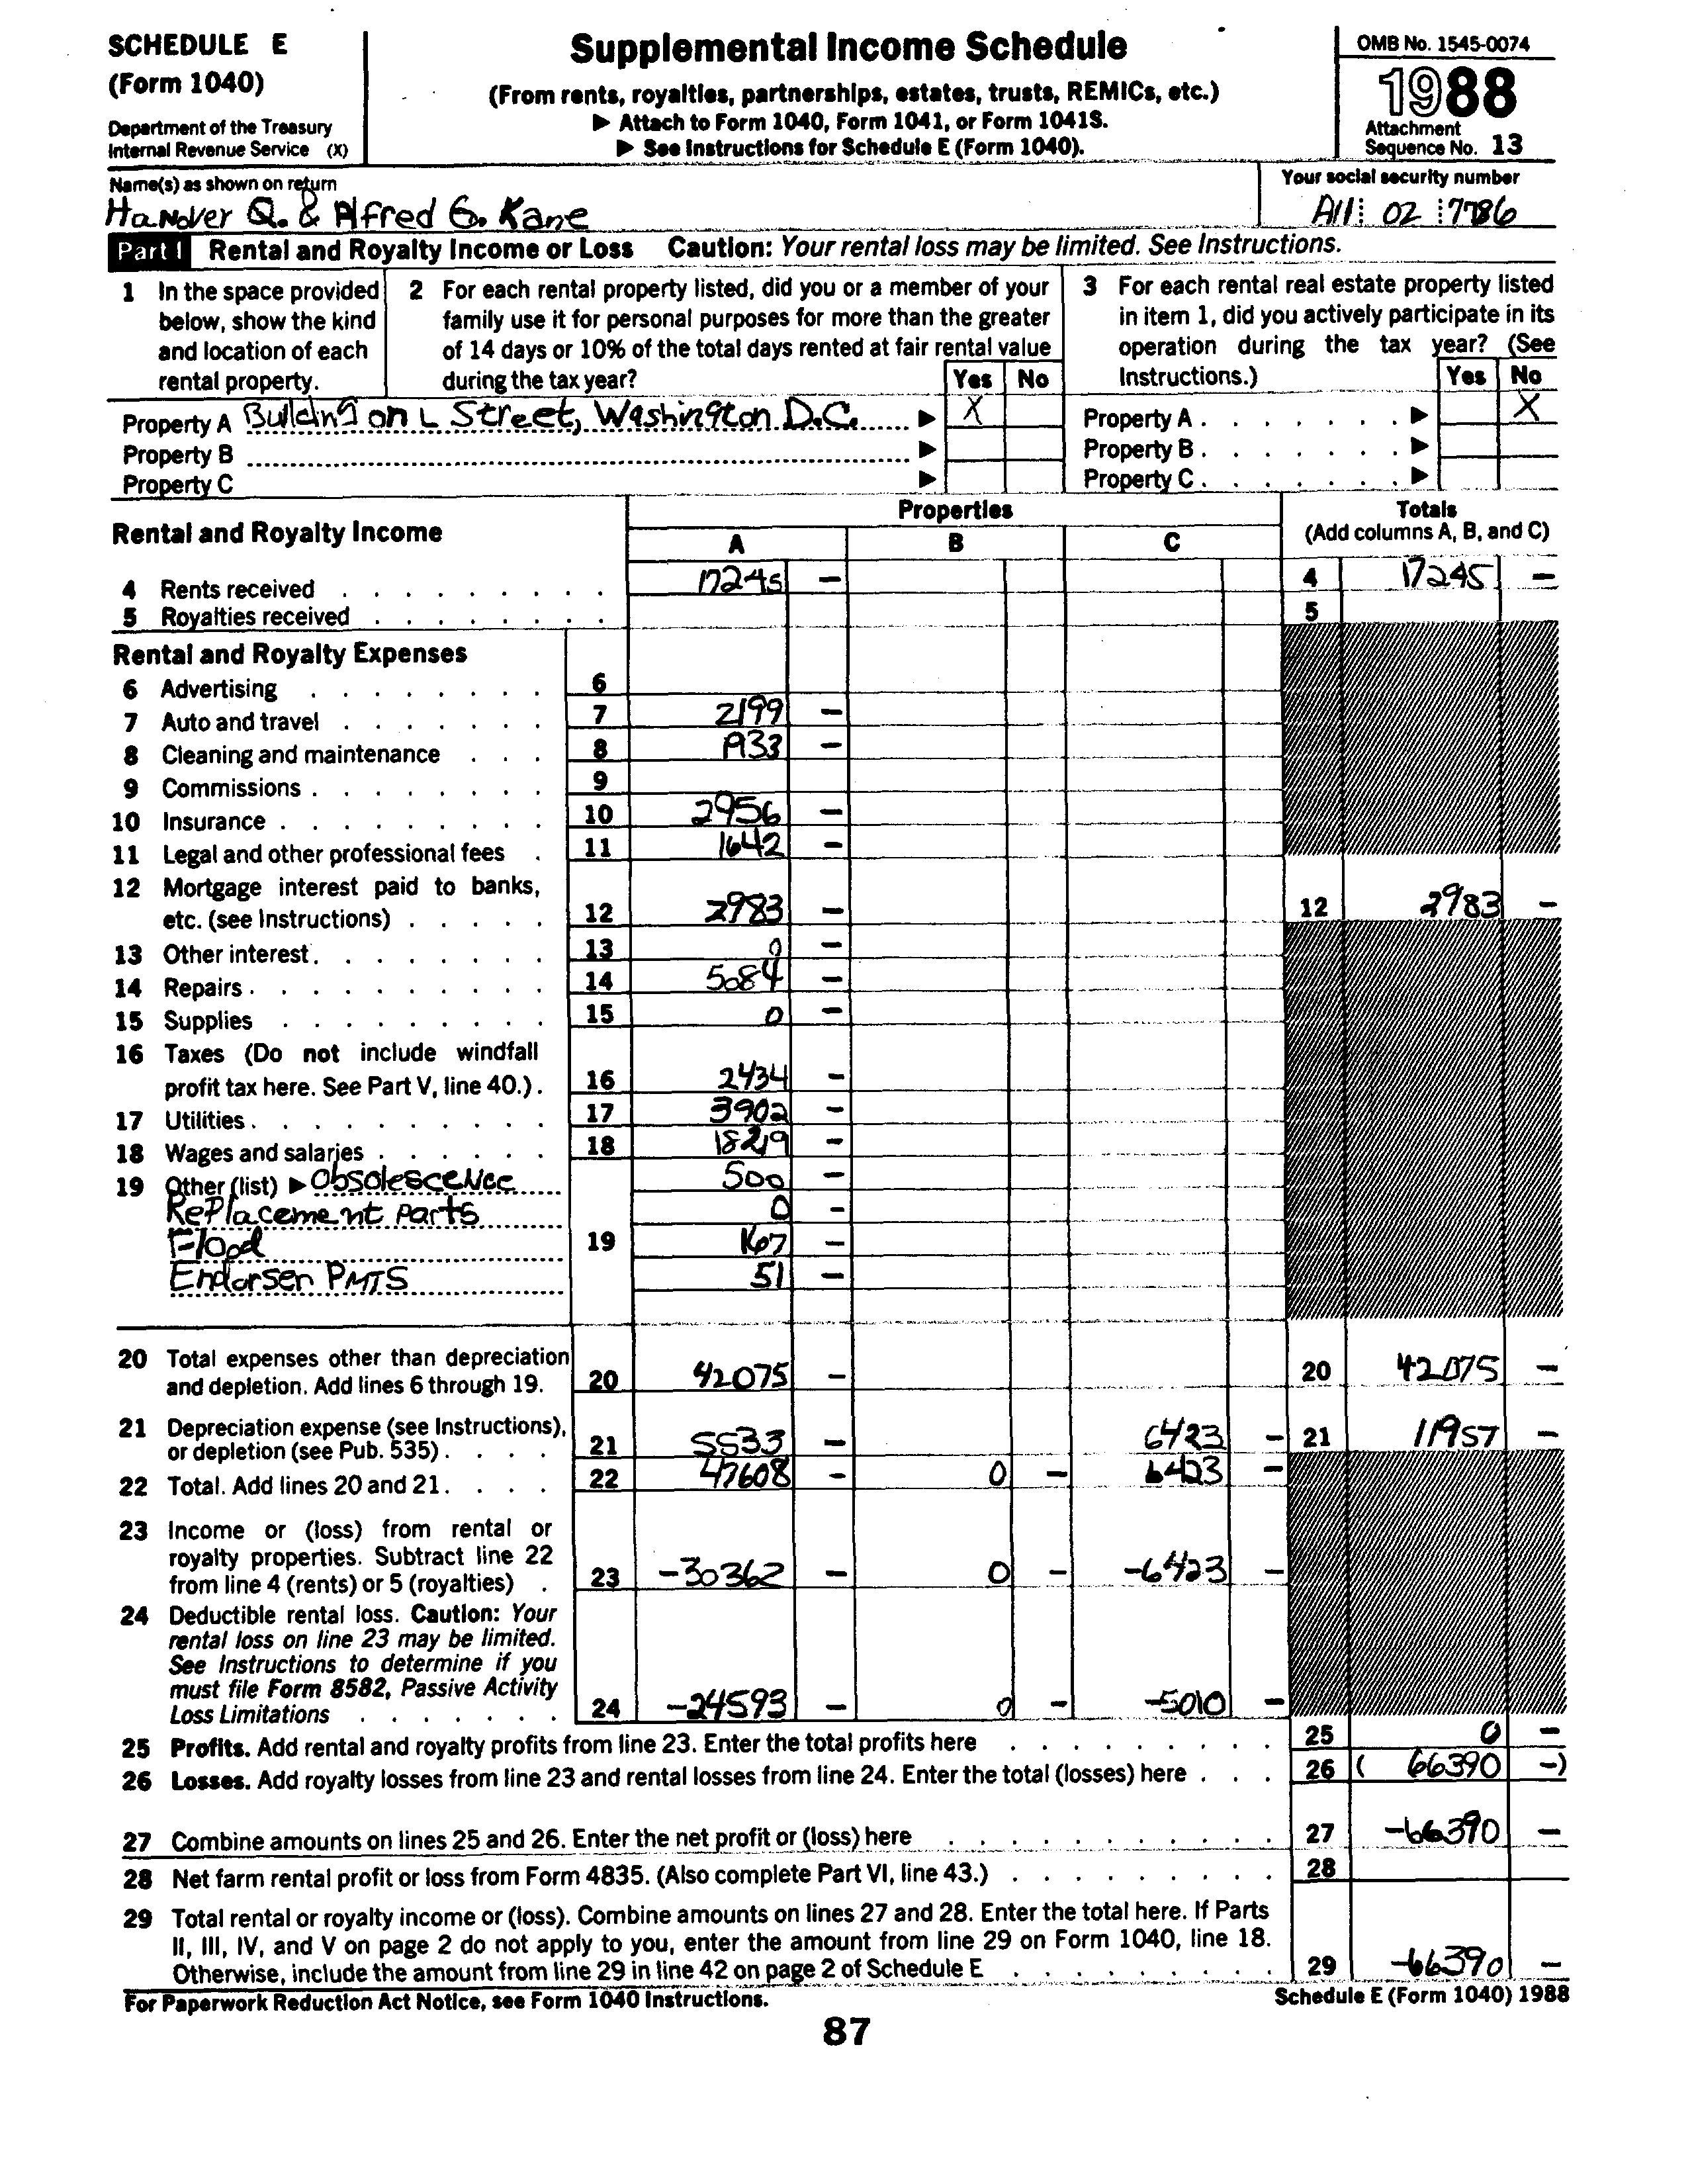 SCHEDULE E
(Form 1040)
Department of the Treasury
Internal Revenue Service (X)
Supplemental Income Schedule
(From rents, royalties, partnerships, estates, trusts, REMICs, etc.)
▶ Attach to Form 1040, Form 1041, or Form 1041S.
▶ See Instructions for Schedule E (Form 1040).
OMB No. 1545-0074
1988
Attachment
Sequence No. 13
Name(s) as shown on return
Hanover Q. & Alfred G. Kane
Your social security number
A11 02 7786
Part I Rental and Royalty Income or Loss Caution: Your rental loss may be limited. See Instructions.
1 In the space provided below, show the kind and location of each rental property.
2 For each rental property listed, did you or a member of your family use it for personal purposes for more than the greater of 14 days or 10% of the total days rented at fair rental value during the tax year? Yes No
3 For each rental real estate property listed in item 1, did you actively participate in its operation during the tax year? (See Instructions.) Yes No
Property A Building on L Street, Washington D.C. ▶ X Property A ▶ X
Property B ▶ Property B ▶
Property C ▶ Property C ▶
Rental and Royalty Income
Properties
A B C
Totals
(Add columns A, B, and C)
4 Rents received 17245 – 4 17245 –
5 Royalties received 5
Rental and Royalty Expenses
6 Advertising 6
7 Auto and travel 7 2199 –
8 Cleaning and maintenance 8 1933 –
9 Commissions 9
10 Insurance 10 2956 –
11 Legal and other professional fees 11 1642 –
12 Mortgage interest paid to banks, etc. (see Instructions) 12 2983 – 12 2983 –
13 Other interest 13 0 –
14 Repairs 14 5084 –
15 Supplies 15 0 –
16 Taxes (Do not include windfall profit tax here. See Part V, line 40.) 16 2434 –
17 Utilities 17 3902 –
18 Wages and salaries 18 18219 –
19 Other (list) ▶ Obsolescence 500 –
Replacement parts 0 –
Flood 19 167 –
Endorsen PMTS 51 –
20 Total expenses other than depreciation and depletion. Add lines 6 through 19. 20 42075 – 20 42075 –
21 Depreciation expense (see Instructions), or depletion (see Pub. 535) 21 5533 – 6423 – 21 11957 –
22 Total. Add lines 20 and 21 22 47608 – 0 – 6423 –
23 Income or (loss) from rental or royalty properties. Subtract line 22 from line 4 (rents) or 5 (royalties) 23 -30362 – 0 – -6423 –
24 Deductible rental loss. Caution: Your rental loss on line 23 may be limited. See Instructions to determine if you must file Form 8582, Passive Activity Loss Limitations 24 -24593 – 0 – -5010 –
25 Profits. Add rental and royalty profits from line 23. Enter the total profits here 25 0 –
26 Losses. Add royalty losses from line 23 and rental losses from line 24. Enter the total (losses) here 26 ( 66390 –)
27 Combine amounts on lines 25 and 26. Enter the net profit or (loss) here 27 -66390 –
28 Net farm rental profit or loss from Form 4835. (Also complete Part VI, line 43.) 28
29 Total rental or royalty income or (loss). Combine amounts on lines 27 and 28. Enter the total here. If Parts II, III, IV, and V on page 2 do not apply to you, enter the amount from line 29 on Form 1040, line 18. Otherwise, include the amount from line 29 in line 42 on page 2 of Schedule E 29 -66390 –
For Paperwork Reduction Act Notice, see Form 1040 Instructions. Schedule E (Form 1040) 1988
87